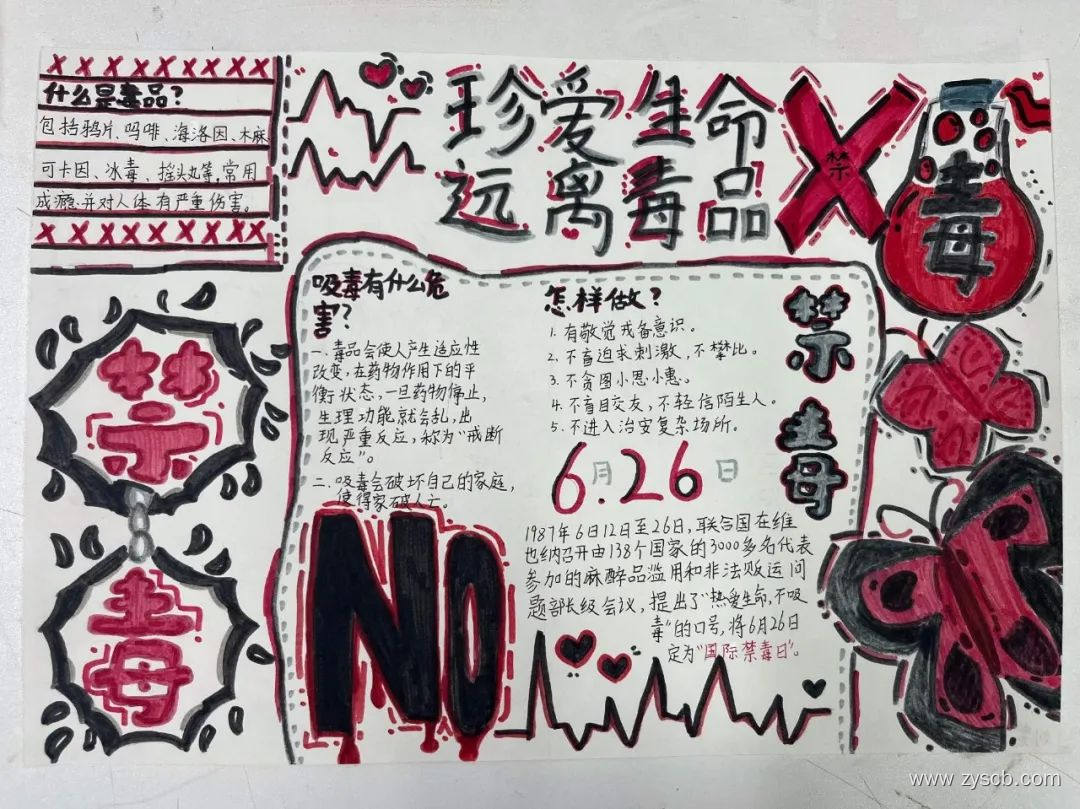 珍爱生命
远离毒品
禁
毒
XXXXXXXXX
什么是毒品？
包括鸦片、吗啡、海洛因、木麻
可卡因、冰毒、摇头丸等,常用
成瘾.并对人体有严重伤害。
XXXXXXXXXX
禁
毒
吸毒有什么危
害？
一、毒品会使人产生适应性
改变,在药物作用下的平
衡状态,一旦药物停止,
生理功能就会乱,出
现严重反应,称为"戒断
反应"。
二、吸毒会破坏自己的家庭,
使得家破人亡。
NO
怎样做？
1. 有敬觉戒备意识。
2. 不盲迫求刺激,不攀比。
3. 不贪图小恩小惠。
4. 不盲目交友,不轻信陌生人。
5. 不进入治安复杂场所。
6月.26日
1987年6日12日至26日,联合国在维
也纳召开由138个国家的3000多名代表
参加的麻醉品滥用和非法贩运问
题部长级会议,提出了"热爱生命,不吸
毒"的口号,将6月26日
定为"国际禁毒日"。
禁
毒
www.zyscb.com